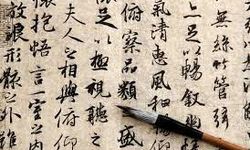 無絲竹管弦
足以暢叙幽
氣清惠風和暢
俯察品類盛
足以極視聽之
夫人之相與俯仰
懷抱悟言一室之內
放浪形骸之外雖